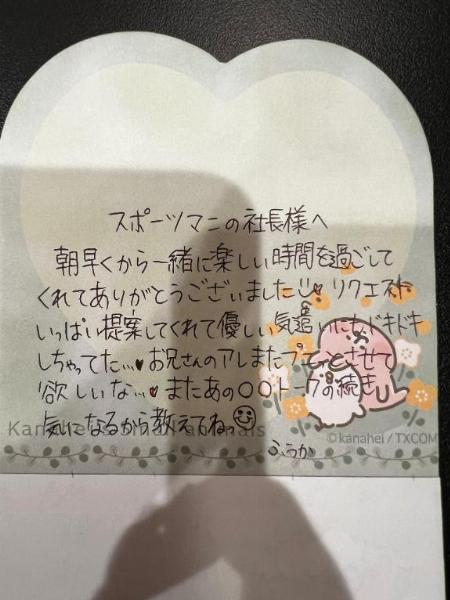 スポーツマンの社長様へ
朝早くから一緒に楽しい時間を過ごして
くれてありがとうございました!!♥ リクエスト
いっぱい提案してくれて優しい気遣いにもドキドキ
しちゃってた…♥ お兄さんのアレまたプニっとさせて
欲しいな…♥ またあの〇〇トークの続き
気になるから教えてね☺
ふうか
Kanahei's small animals
©kanahei / TXCOM